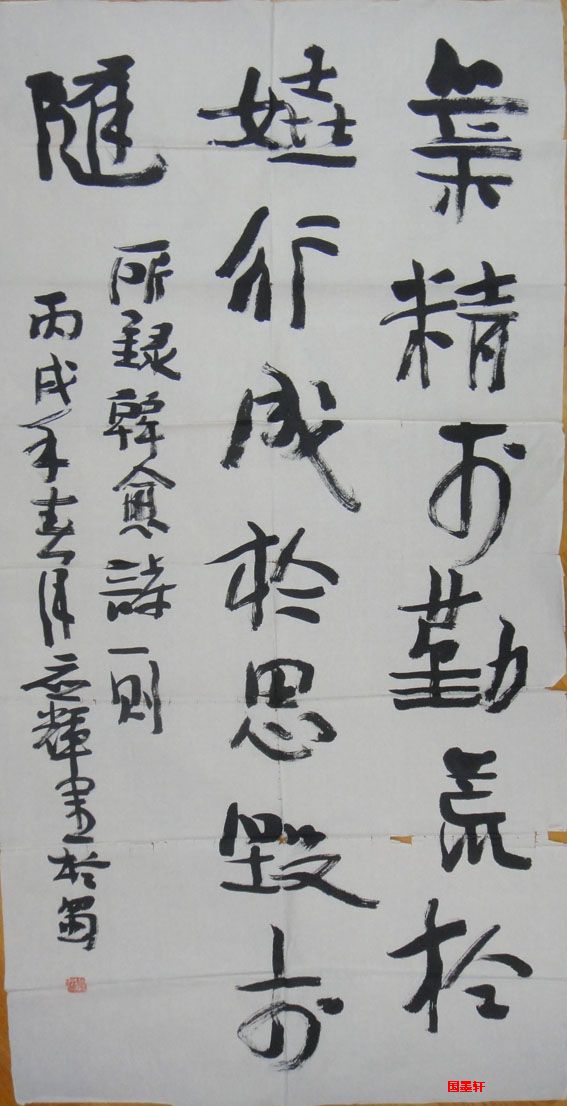 業精于勤荒於
嬈行成於思毀于
隨
所録韓愈詩一則
丙戌年春月輝書於蜀
国墨轩